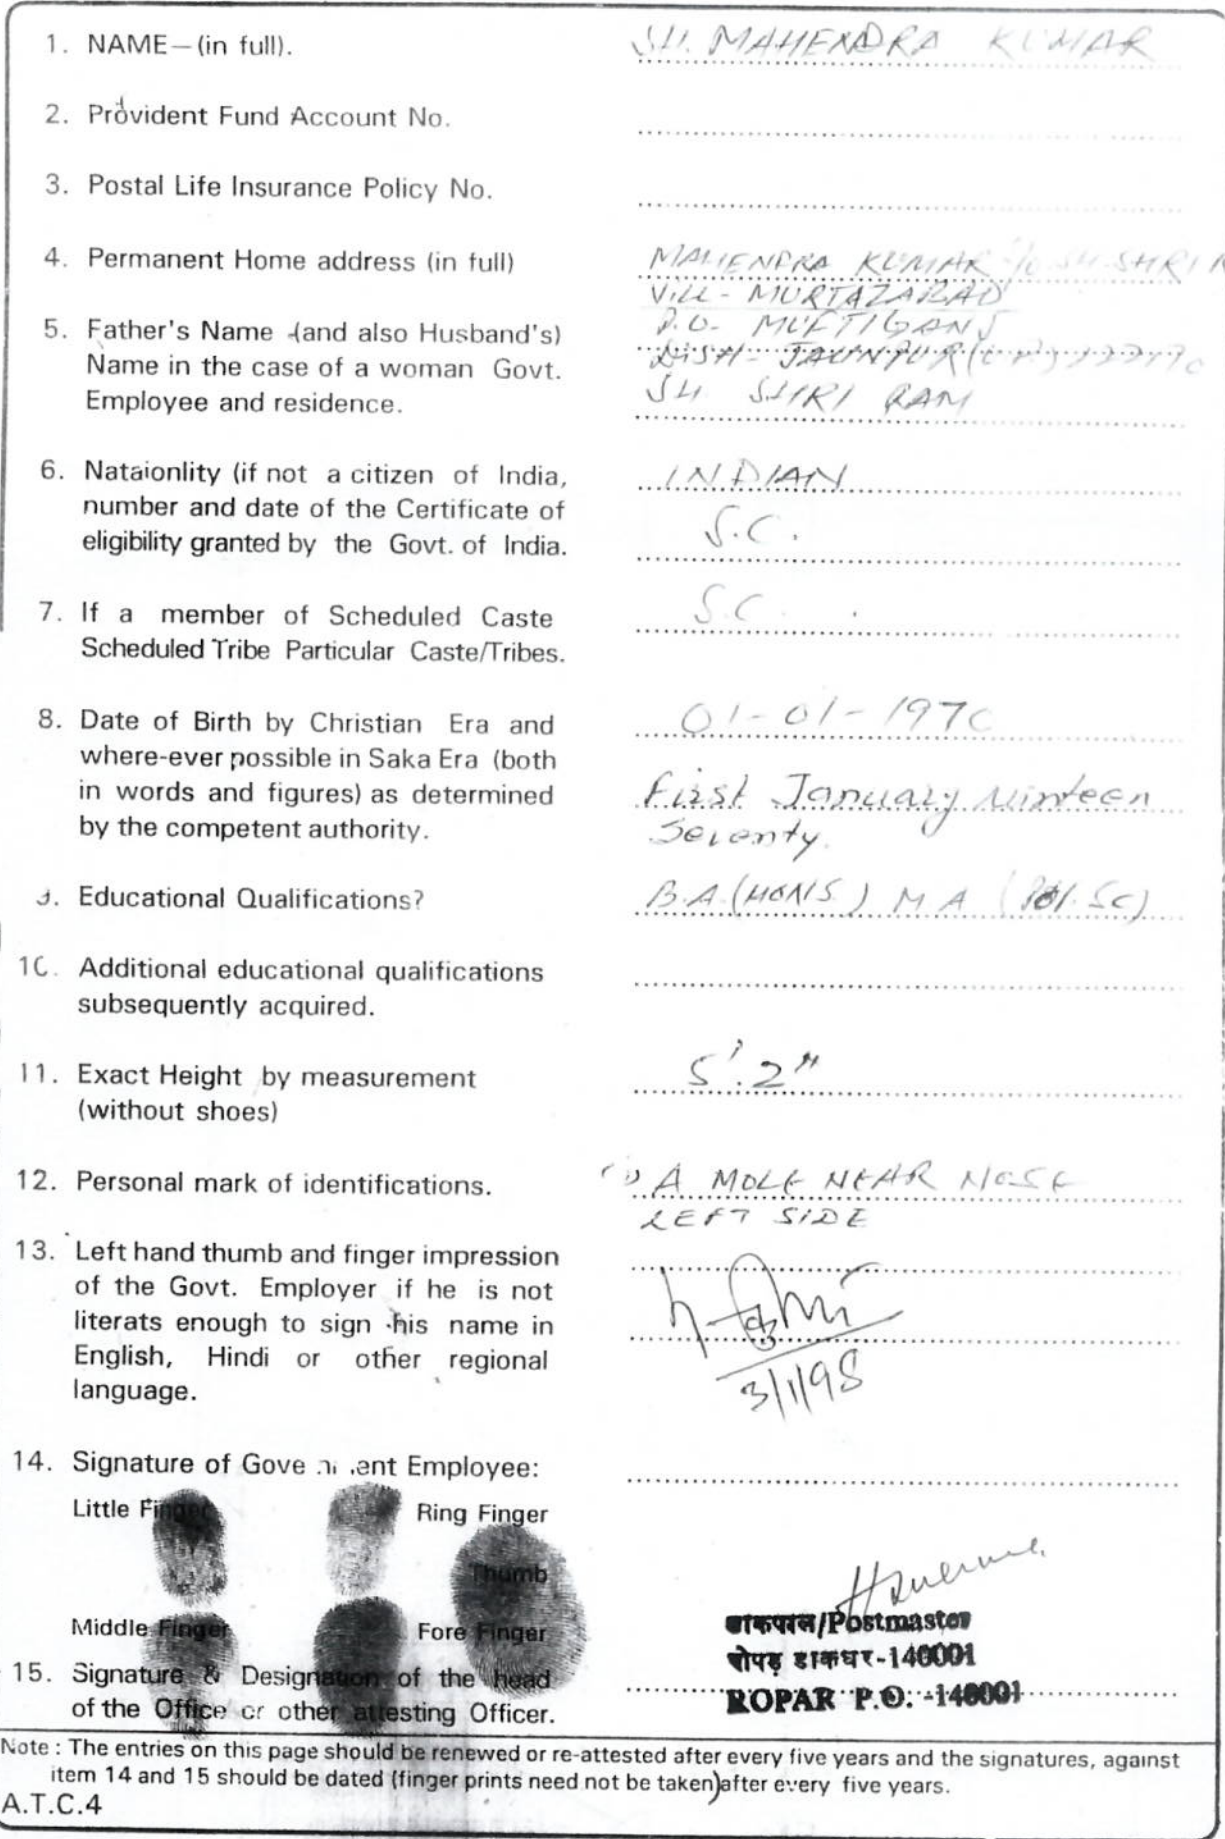 1. NAME—(in full). SH. MAHENDRA KUMAR
2. Provident Fund Account No.
3. Postal Life Insurance Policy No.
4. Permanent Home address (in full) MAHENDRA KUMAR S/o SH. SHRI
VILL- MURTAZABAD
P.O. MUFTIGANJ
5. Father's Name (and also Husband's)
Name in the case of a woman Govt. DISTT- JAUNPUR
Employee and residence. SH. SHRI RAM
6. Nataionlity (if not a citizen of India, INDIAN
number and date of the Certificate of S.C.
eligibility granted by the Govt. of India.
7. If a member of Scheduled Caste S.C.
Scheduled Tribe Particular Caste/Tribes.
8. Date of Birth by Christian Era and 01-01-1970
where-ever possible in Saka Era (both
in words and figures) as determined First January Ninteen
by the competent authority. Seventy.
Educational Qualifications? B.A.(HONS.) M A (Pol. Sc)
10. Additional educational qualifications
subsequently acquired.
11. Exact Height by measurement 5'.2"
(without shoes)
12. Personal mark of identifications. (1) A MOLE NEAR NOSE
LEFT SIDE
13. Left hand thumb and finger impression
of the Govt. Employer if he is not
literats enough to sign his name in
English, Hindi or other regional
language. 3/1/98
14. Signature of Employee:
Little Finger Ring Finger
Thumb
Middle Finger Fore Finger डाकपाल/Postmaster
रोपड़ डाकघर-140001
15. Signature & Designation of the head
of the Office or other attesting Officer. ROPAR P.O.-140001
Note : The entries on this page should be renewed or re-attested after every five years and the signatures, against
item 14 and 15 should be dated (finger prints need not be taken)after every five years.
A.T.C.4